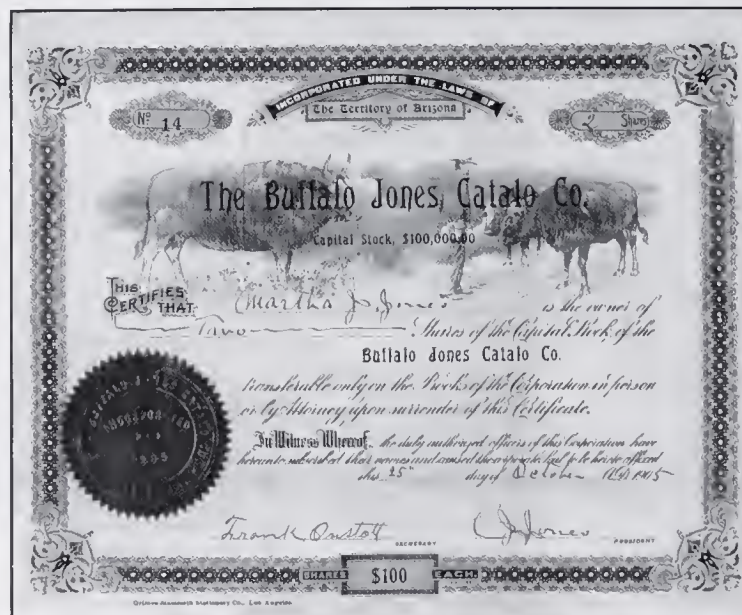 INCORPORATED UNDER THE LAWS OF
The Territory of Arizona
No 14
2 Shares
The Buffalo Jones Catalo Co.
Capital Stock, $100,000.00
THIS CERTIFIES THAT Martha J. Jones is the owner of
Two Shares of the Capital Stock of the
Buffalo Jones Catalo Co.
transferable only on the Books of the Corporation in person
or by Attorney upon surrender of this Certificate.
In Witness Whereof, the duly authorized officers of this Corporation have
hereunto subscribed their names and caused the corporate Seal to be hereto affixed
this 25" day of October A.D. 1905
Frank Onstott SECRETARY C J Jones PRESIDENT
SHARES $100 EACH.
Stationery Co., Los Angeles